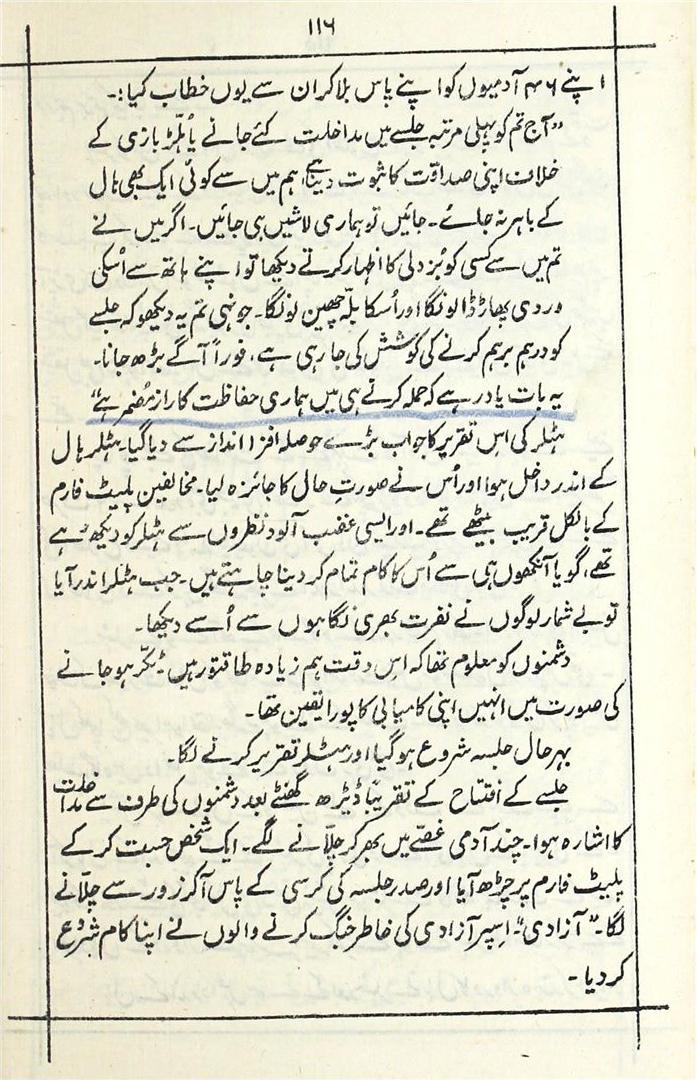 ۱۱۶
اپنے ۴۶ آدمیوں کو اپنے پاس بلا کر ان سے یوں خطاب کیا:۔
"آج تم کو پہلی مرتبہ جلسے میں مداخلت کئے جانے یا ہُلّڑ بازی کے
خلاف اپنی صداقت کا ثبوت دینا ہے، ہم میں سے کوئی ایک بھی ہال
کے باہر نہ جائے۔ جائیں تو ہماری لاشیں ہی جائیں۔ اگر میں نے
تم میں سے کسی کو بُزدلی کا اظہار کرتے دیکھا تو اپنے ہاتھ سے اُسکی
وردی پھاڑ ڈالونگا اور اُسکا بلّہ چھین لونگا۔ جونہی تم یہ دیکھو کہ جلسے
کو درہم برہم کرنے کی کوشش کی جا رہی ہے، فوراً آگے بڑھ جانا۔
یہ بات یاد رہے کہ حملہ کرنے ہی میں ہماری حفاظت کا راز مُضمر ہے"
ہٹلر کی اس تقریر کا جواب بڑے حوصلہ افزا انداز سے دیا گیا۔ ہٹلر ہال
کے اندر داخل ہوا اور اُس نے صورتِ حال کا جائزہ لیا۔ مخالفین پلیٹ فارم
کے بالکل قریب بیٹھے تھے۔ اور ایسی غضب آلود نظروں سے ہٹلر کو دیکھ رہے
تھے، گویا آنکھوں ہی سے اُس کا کام تمام کر دینا چاہتے ہیں۔ جب ہٹلر اندر آیا
تو بے شمار لوگوں نے نفرت بھری نگاہوں سے اُسے دیکھا۔
دشمنوں کو معلوم تھا کہ اس وقت ہم زیادہ طاقتور ہیں۔ ٹکّر ہو جانے
کی صورت میں انہیں اپنی کامیابی کا پورا یقین تھا۔
بہرحال جلسہ شروع ہو گیا اور ہٹلر تقریر کرنے لگا۔
جلسے کے افتتاح کے تقریباً ڈیڑھ گھنٹے بعد دشمنوں کی طرف سے مداخلت
کا اشارہ ہوا۔ چند آدمی غصّے میں بھر کر چلّانے لگے۔ ایک شخص جست کر کے
پلیٹ فارم پر چڑھ آیا اور صدر جلسہ کی کرسی کے پاس آ کر زور سے چلّانے
لگا۔ "آزادی"۔ اسپر آزادی کی خاطر جنگ کرنے والوں نے اپنا کام شروع
کر دیا۔